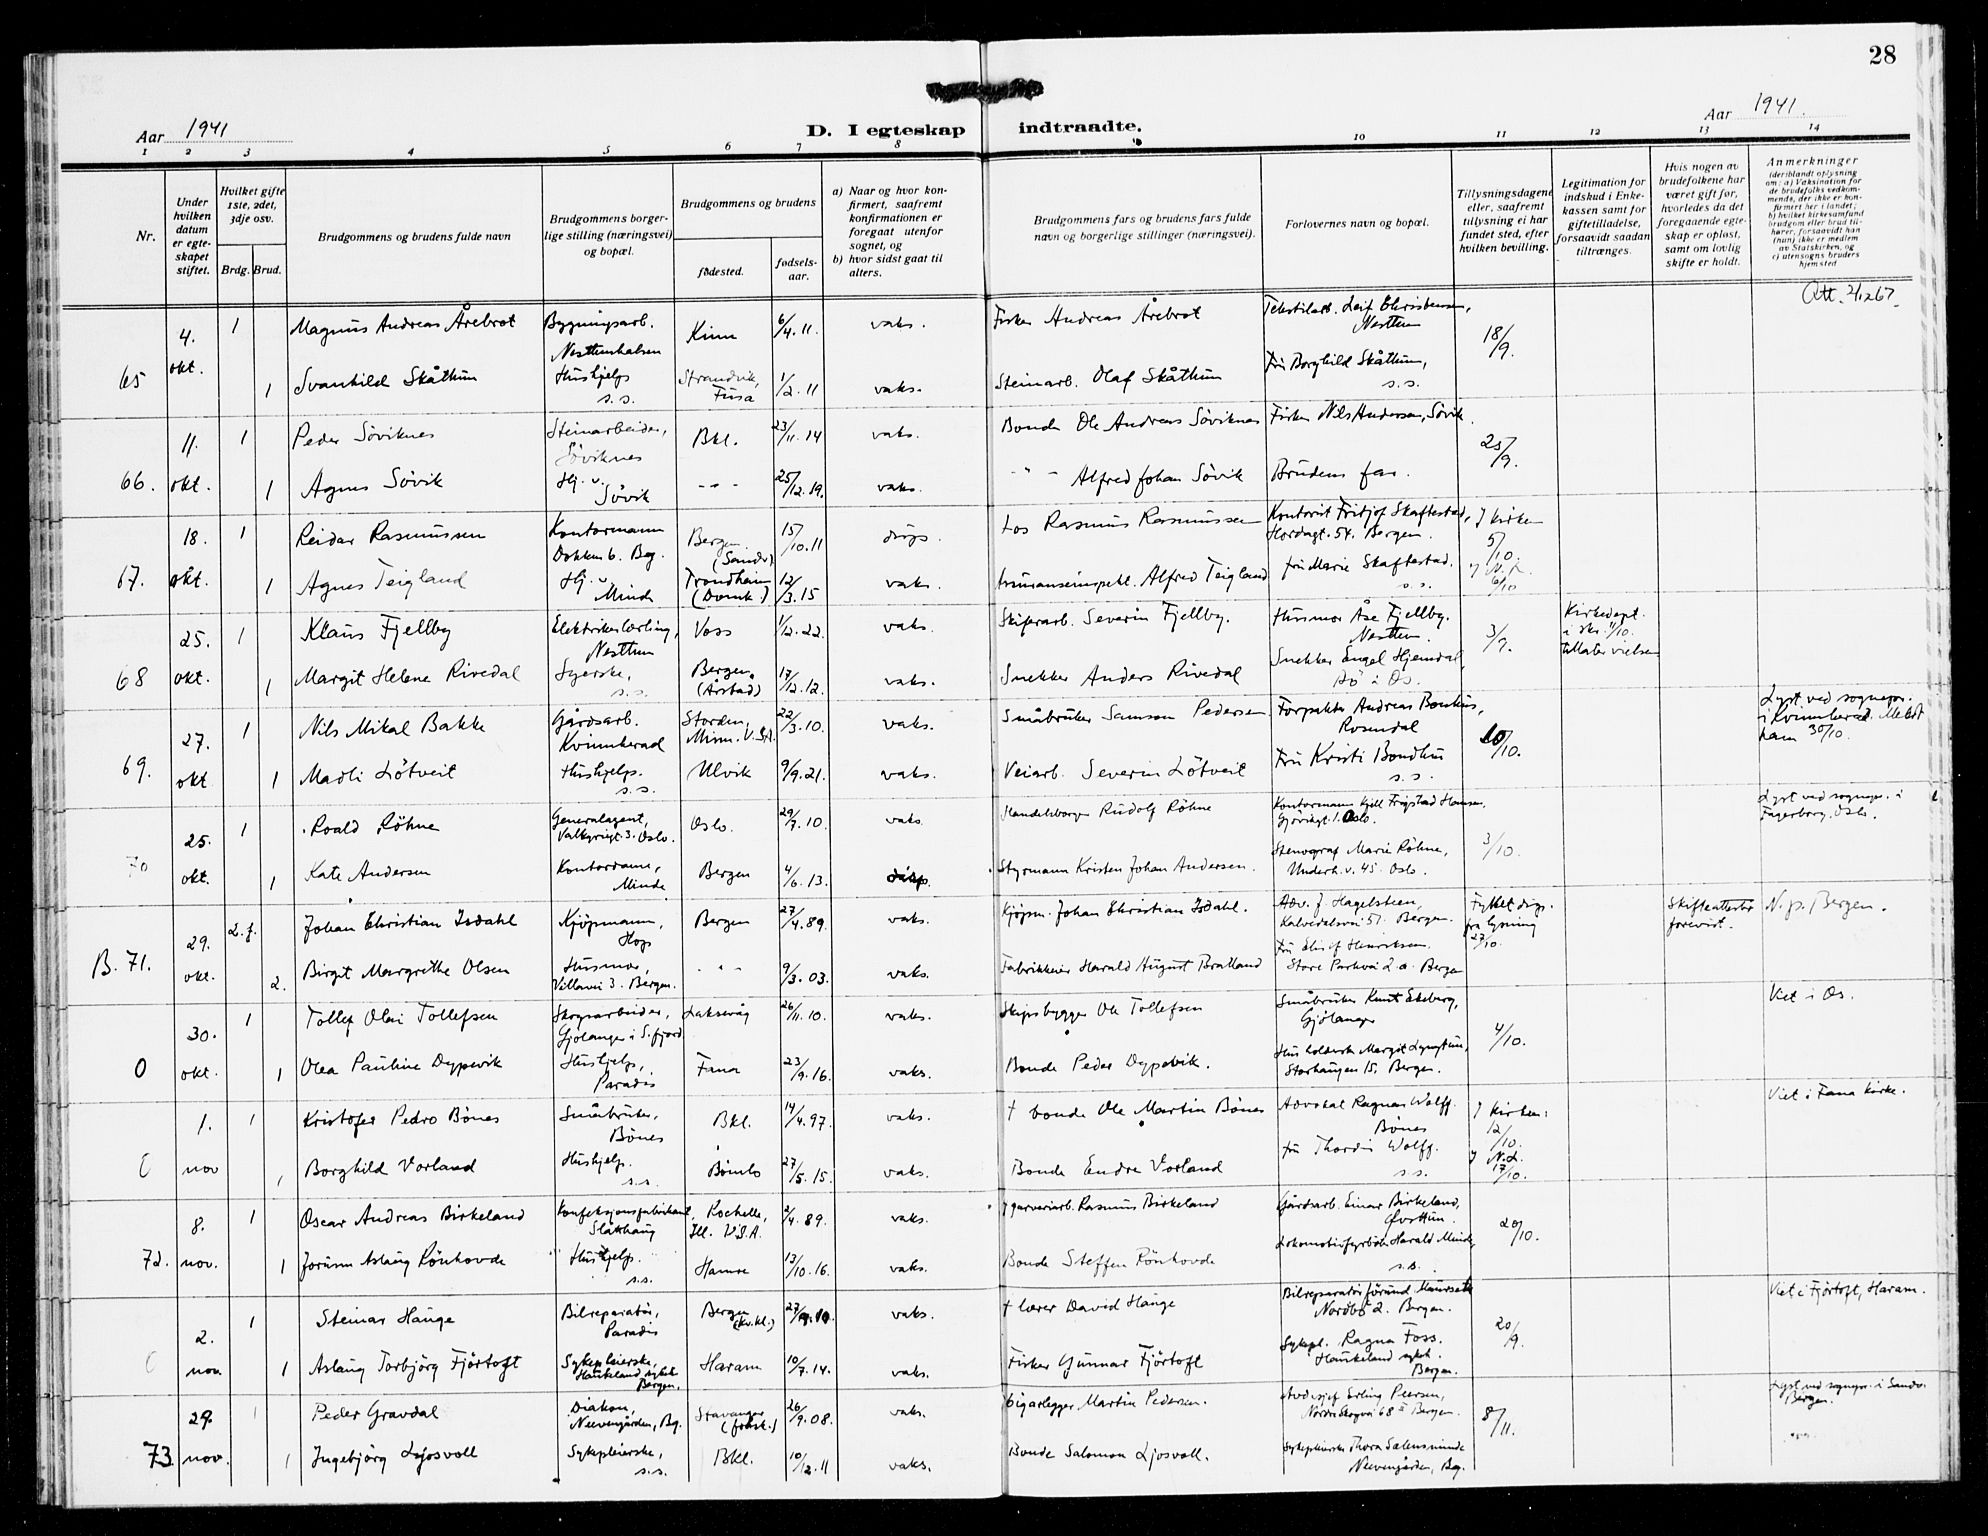 28
Aar 1941
D. I egteskap indtraadte.
Aar 1941.
1 2 3 4 5 6 7 8 9 10 11 12 13 14
Nr.
Under hvilken datum er egteskapet stiftet.
Hvilket gifte 1ste, 2det, 3dje osv.
Brdg. Brud.
Brudgommens og brudens fulde navn
Brudgommens borgerlige stilling (næringsvei) og bopæl.
Brudgommens og brudens
fødested.
fødselsaar.
a) Naar og hvor konfirmert, saafremt konfirmationen er foregaat utenfor sognet, og
b) hvor sidst gaat til alters.
Brudgommens fars og brudens fars fulde navn og borgerlige stillinger (næringsvei).
Forlovernes navn og bopæl.
Tillysningsdagene eller, saafremt tillysning ei har fundet sted, efter hvilken bevilling.
Legitimation for indskud i Enkekassen samt for giftetilladelse, forsaavidt saadan tiltrænges.
Hvis nogen av brudefolkene har været gift før, hvorledes da det foregaaende egteskap er opløst, samt om lovlig skifte er holdt.
Anmerkninger
(deriblandt oplysning om: a) Vaksination for de brudefolks vedkommende, der ikke er konfirmert her i landet; b) hvilket kirkesamfund brudgom eller brud tilhører, forsaavidt han (hun) ikke er medlem av Statskirken, og c) utensogns bruders hjemsted
65 4. okt. 1 Magnus Andreas Årebrot Bygningsarb. Nesttunhalsen Kinn 6/4.11. vaks. Fisker Andreas Årebrot Tekstilarb. Leif Christensen, Nesttun 18/9. Att. 2/12 67.
1 Svanhild Skåthun Hushjelp s.s. Strandvik, Fusa 1/2.11 vaks. Steinarb. Olaf Skåthun Fru Borghild Skåthun, s.s.
66. 11. okt. 1 Peder Søviknes Steinarbeider, Søviknes Bkl. 23/11.14 vaks. Bonde Ole Andreas Søviknes Fisker Nils Andersen, Søvik. 25/9.
1 Agnes Søvik Hj. v. Søvik - " - 25/12.19. vaks. - " - Alfred Johan Søvik Brudens far.
67. 18. okt. 1 Reidar Rasmussen Kontormann Dokken 6. Bg. Bergen (Sandv.) 15/10.11 disps. Los Rasmus Rasmussen Kontorist Fritjof Skaftestad, Hordagt. 54. Bergen. I kirken 5/10.
1 Agnes Teigland Hj. v. Minde Trondheim (Domk.) 12/3.15 vaks. Assuranseinspekt. Alfred Teigland Fru Marie Skaftestad. s.s.
68 25. okt. 1 Klaus Fjellby Elektrikerlærling, Nesttun Voss 1/12.22. vaks. Skiferarb. Severin Fjellby. Husmor Åse Fjellby. Nesttun. 3/9. Kirkedept. i skr. 11/10. tillater vielsen
1 Margit Helene Rivedal Syerske, s.s. Bergen. (Årstad) 17/12.12. vaks. Snekker Anders Rivedal Snekker Engel Hjemdal, Bø i Os.
69. 27. okt 1 Nils Mikal Bakke Gårdsarb. Kvinnherad Storden, Minn. U.S.A. 22/3.10. vaks. Småbruker Samson Pedersen Forpakter Andreas Bondhus, Rosendal 10/10. Lyst ved sognepr. i Kvinnherad. Meldt ham 30/10.
1 Madli Løtveit Hushjelp. s.s. Ulvik 9/9.21. vaks. Veiarb. Severin Løtveit Fru Kristi Bondhus s.s.
70 25. okt. 1 Roald Røhne Generalagent, Valkyriegt. 3. Oslo. Oslo. 29/7.10. vaks. Handelsborger Rudolf Røhne Kontormann Kjell Frigstad Hansen, Gjøvikgt. 1. Oslo. 3/10. Lyst ved sognepr. i Fagerborg. Oslo.
1 Kate Andersen Kontordame, Minde Bergen 4/6.13. disp. Styrmann Kristen Johan Andersen. Stenograf Marie Røhne, Underh.v. 45. Oslo.
B. 71. 29. okt. 2. f. Johan Christian Isdahl Kjøpmann, Hop Bergen 27/4.89. vaks. Kjøpm. Johan Christian Isdahl. Adv. J. Hagelsteen, Kalvedalsvei 51. Bergen. Fylket disp. fra lysning 27/10. Skifteattester forevist. N. p. Bergen.
2. Birgit Margrethe Olsen Husmor, Villavei 3. Bergen. - " - 9/3.03. vaks. Fabrikkeier Harald August Bratland Fru Elisef Henriksen. Store Parkvei 2 a. Bergen
0 30. okt. 1 Tollef Olai Tollefsen Skogsarbeider, Gjølanger i S.fjord Laksevåg 26/11.10. vaks. Skipsbygger Ole Tollefsen Småbruker Knut Ekeberg, Gjølanger 4/10. Viet i Os.
1 Olea Pauline Dypevik Hushjelp, Paradis Fana 23/9.16. vaks. Bonde Peder Dypevik. Husholderske Margit Lyngtun, Storhaugen 15, Bergen.
1. nov 1 Kristofer Pedro Bønes Småbruker, Bønes Bkl. 14/4.97. vaks. † bonde Ole Martin Bønes Advokat Ragnar Wolff. Bønes I kirken: 12/10. Viet i Fana kirke.
1 Borghild Vorland Hushjelp. s.s. Bømlo 27/5.15. vaks. Bonde Endre Vorland Fru Thordis Wolff. s.s. I N.d. 17/10.
72. 8. nov. 1 Oscar Andreas Birkeland Konfeksjonsfabrikant, Slåtthaug Rochelle, Ill. U.S.A. 2/4.89. vaks. † garveriarb. Rasmus Birkeland Gårdsarb. Einar Birkeland, Øvsttun. 20/10.
1 Jorunn Aslaug Rønhovde Hushjelp. s.s. Hamre 13/10.16. vaks. Bonde Steffen Rønhovde Lokomotivfyrbøter Harald Minde, s.s.
2. nov. 1 Steinar Hauge Bilreparatør, Paradis Bergen (Kv.kl.) vaks. † lærer David Hauge Bilreparatør Jørund Maurseth Nordbø 2. Bergen. 20/9. Viet i Fjørtoft, Haram.
1 Aslaug Torbjørg Fjørtoft Sykepleierske, Haukeland sykeh. Bergen. Haram 10/7.14. vaks. Fisker Gunnar Fjørtoft Sykepl. Ragna Foss. Haukeland sykeh. Bergen.
73. 29. nov. 1 Peder Gravdal Diakon, Neevengården, Bg. Stavanger 26/9.08. vaks. Cigarlegger Martin Pedersen. Avd.sjef Erling Peersen, Nordre Skogvei 68 II Bergen. 8/11. Lyst ved sognepr. i Sandv. Bergen.
1 Ingebjørg Ljosvoll Sykepleierske, s.s. Bkl. 10/12.11 vaks. Bonde Salomon Ljosvoll. Sykepleierske Thora Salensminde Neevengården, Bg.